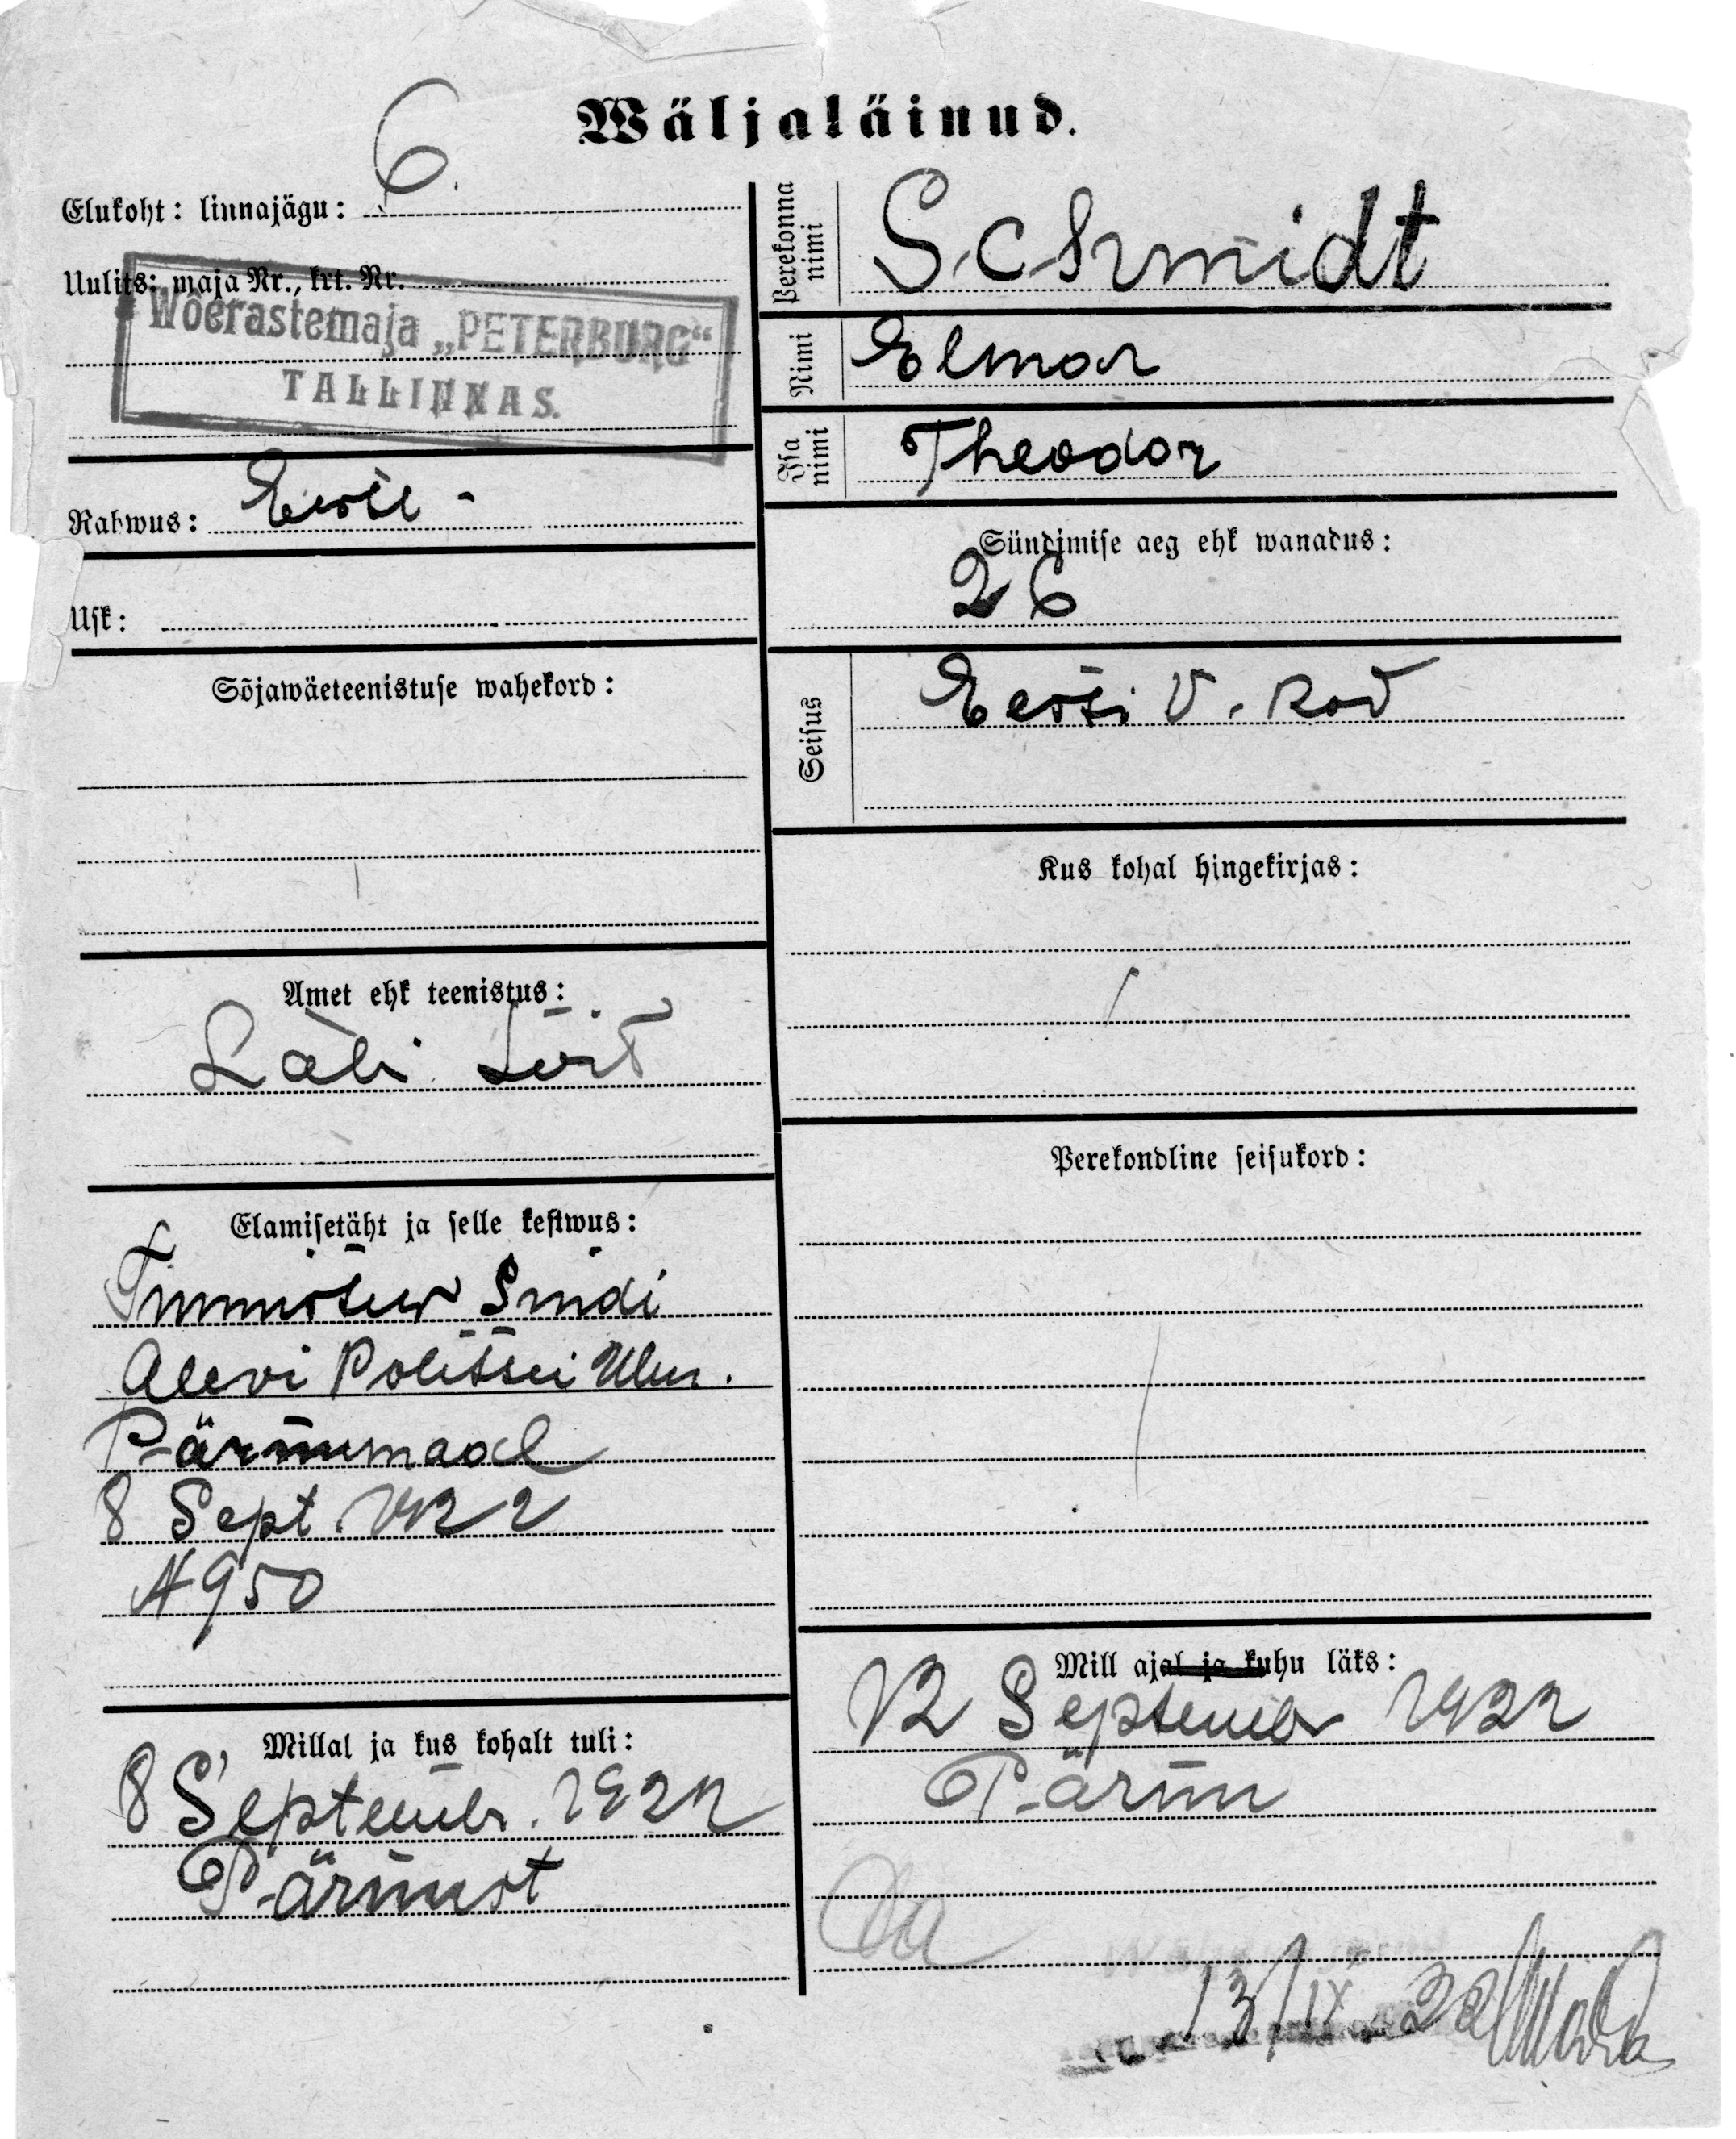 Wäljaläinud.
Elukoht: linnajägu: 6.
Uulits: maja Nr., krt. Nr.
Wõerastemaja „PETERBURG“
TALLINNAS.
Rahwus: Eesti -
Usk:
Sõjawäeteenistuse wahekord:
Amet ehk teenistus:
Läbi Sõit
Elamisetäht ja selle kestwus:
Tunnistus Sindi
Alevi Politsei Ülem.
Pärnumaal
8 Sept. 1922
N 950
Millal ja kus kohalt tuli:
8 Septembr. 1922
Pärnust
Perekonna nimi
Schmidt
Nimi
Elmar
Isa nimi
Theodor
Sündimise aeg ehk wanadus:
26
Seisus
Eesti V. Kod
Kus kohal hingekirjas:
Perekondline seisukord:
Mill ajal ja kuhu läks:
12 Septembr 1922
Pärnu
13/IX 22